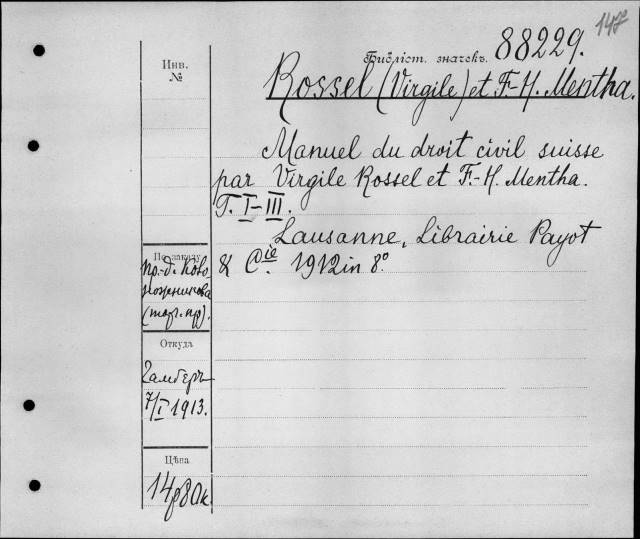 147
Библіот. значекъ. 88229.
Инв.
№
Rossel (Virgile) et F.-H. Mentha.
Manuel du droit civil suisse
par Virgile Rossel et F.-H. Mentha.
T. I-III.
Lausanne, Librairie Payot
& Cie. 1912 in 8°.
По заказу
пр.-д. Ново
(торг. пр).
Откуда
7/I 1913.
Цѣна
14р80к.